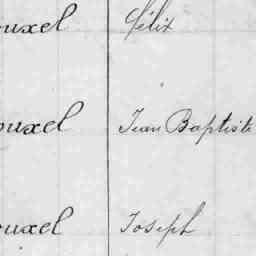 ouxel Félix
ouxel Jean Baptiste
ouxel Joseph